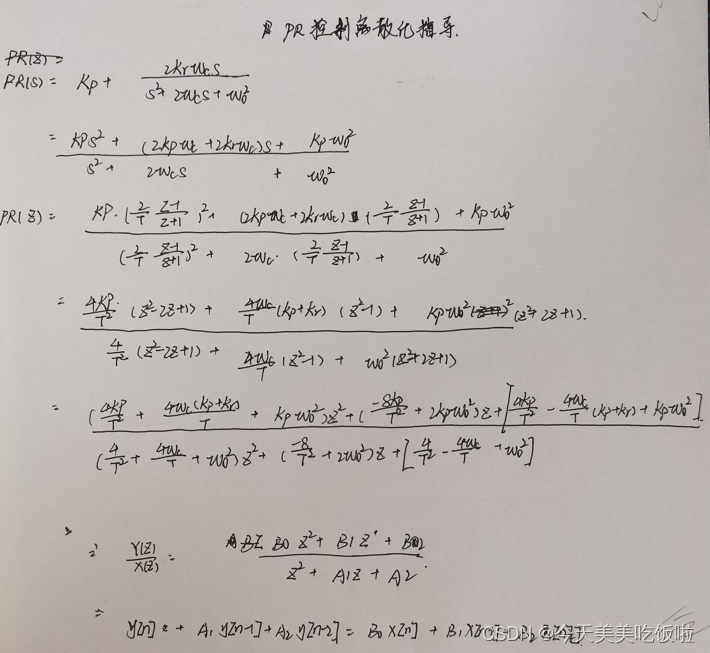 PR控制离散化推导.
PR(Z)=
PR(S) = Kp + 2krwcs / (s²+2wcs+w0²)
= (KPs² + (2kpwc+2krwc)s + Kpw0²) / (s² + 2wcs + w0²)
PR(Z) = (KP·(2/T (Z-1)/(Z+1))² + (2kpwc+2krwc)·(2/T (Z-1)/(Z+1)) + Kpw0²) / ((2/T (Z-1)/(Z+1))² + 2wc·(2/T (Z-1)/(Z+1)) + w0²)
= (4KP/T² (Z²-2Z+1) + 4wc/T (kp+kr) (Z²-1) + Kpw0² (Z²+2Z+1)) / (4/T² (Z²-2Z+1) + 4wc/T (Z²-1) + w0² (Z²+2Z+1))
= ((4KP/T² + 4wc(kp+kr)/T + Kpw0²)Z² + (-8kp/T² + 2kpw0²)Z + [4kp/T² - 4wc/T (kp+kr) + Kpw0²]) / ((4/T² + 4wc/T + w0²)Z² + (-8/T² + 2w0²)Z + [4/T² - 4wc/T + w0²])
Y(Z)/X(Z) = (B0 Z² + B1 Z + B2) / (Z² + A1Z + A2)
=
Y[n] + A1 y[n-1] + A2 y[n-2] = B0 X[n] + B1 X[n-1] + B2
CSDN @今天美美吃饭啦